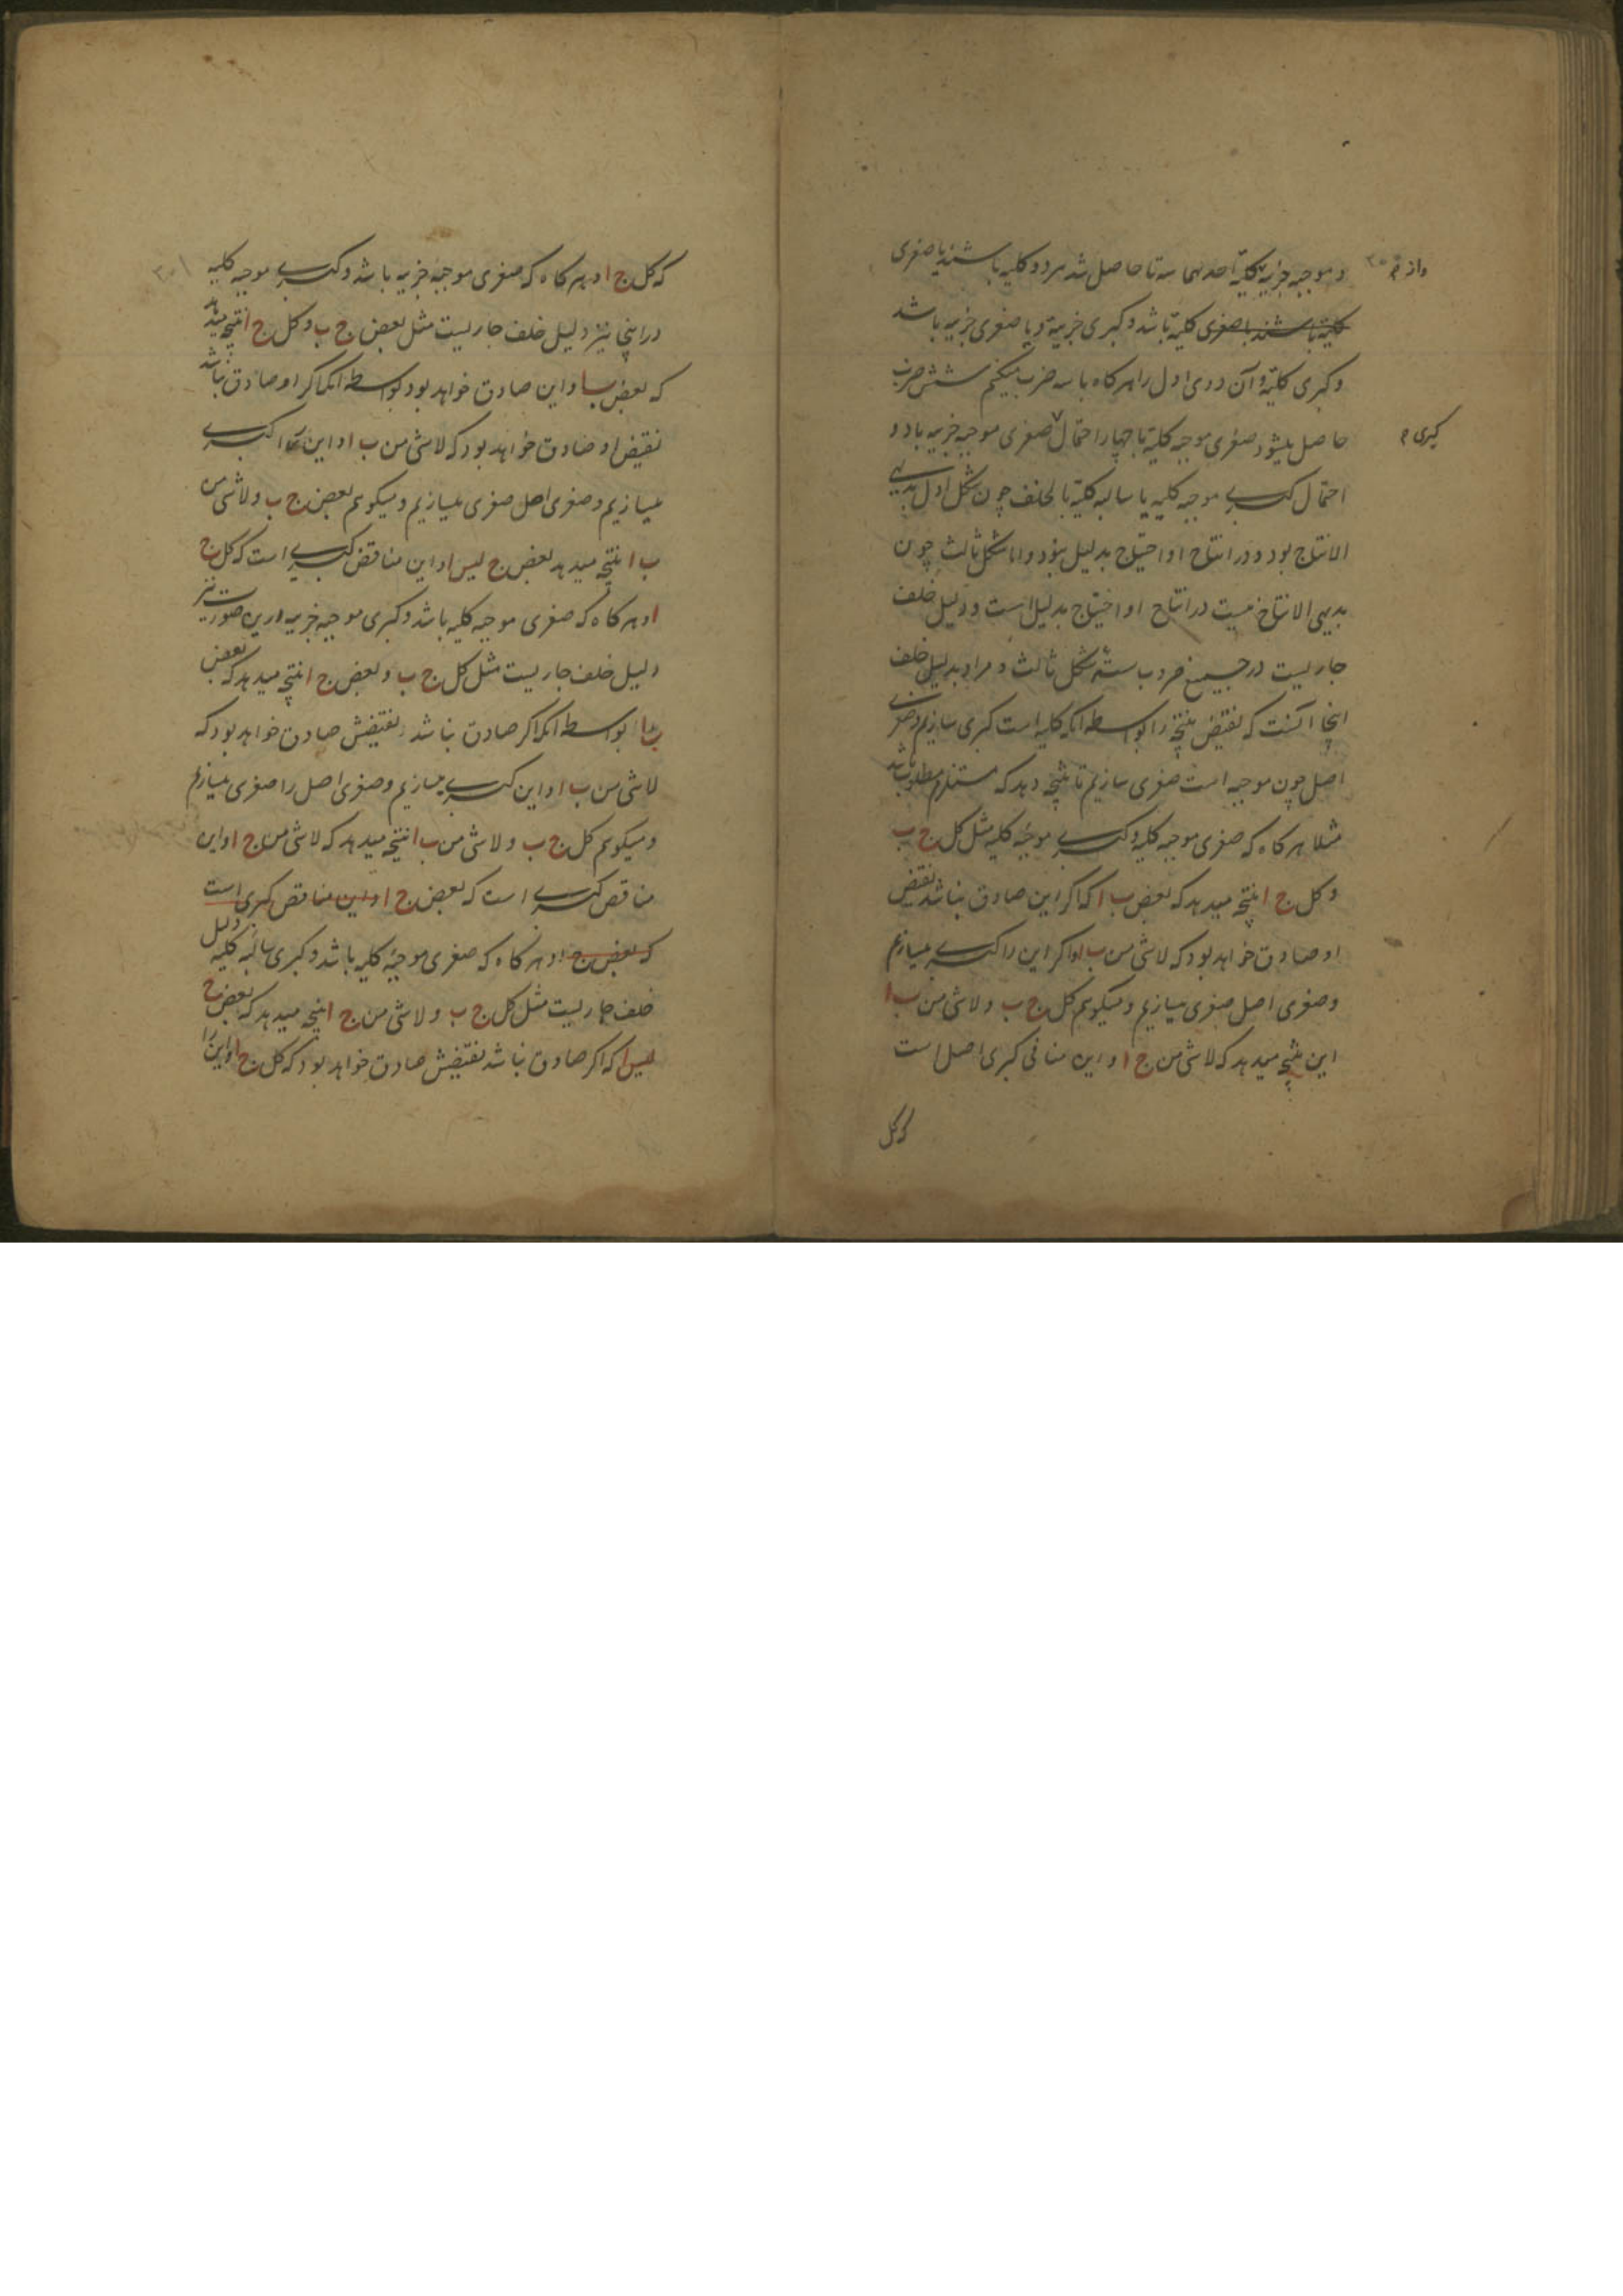 و موجبه جزییه کلیة احدیهما سه تا حاصل شد هر دو کلیه باشند یا صغری
واز م
کلیة باشند یا صغری کلیة باشد و کبری جزییة و یا صغری جزییه باشد
و کبری کلیة و آن دوی اول را هرکاه با سه ضرب میکنیم شش ضرب
حاصل میشود صغری موجبه کلیة با چهار احتمال صغری موجبه جزییه با دو
کبری م
احتمال کبری موجبه کلیه یا سالبه کلیة بالخلف چون شکل اول بدیهی
الانتاج بود و در انتاج او احتیاج بدلیل نبود و اما شکل ثالث چون
بدیهی الانتاج نیست در انتاج او احتیاج بدلیل است و دلیل خلف
جاریست در جمیع ضروب سته شکل ثالث و مراد بدلیل خلف
اینجا آنست که نقیض نتیجه را بواسطه انکه کلیه است کبری سازیم و صغری
اصل چون موجبه است صغری سازیم تا نتیجه دهد که مستلزم مطلوب باشد
مثلا هرکاه که صغری موجبه کلیه و کبری موجبه کلیه مثل کل ج ب
و کل ج ا نتیجه میدهد که بعض ب ا که اکر این صادق نباشد نقیض
او صادق خواهد بود که لاشی من ب ا و اکر این را کبری میسازیم
و صغری اصل صغری میسازیم و میکویم کل ج ب و لاشی من ب ا
این نتیجه میدهد که لاشی من ج ا و این منافی کبری اصل است
که کل
که کل ج ا و هرکاه که صغری موجبه جزییه باشد و کبری موجبه کلیه
۳۰۱
در اینجا نیز دلیل خلف جاریست مثل بعض ج ب و کل ج ا نتیجه میدهد
که بعض ب ا و این صادق خواهد بود بواسطه انکه اکر او صادق نباشد
نقیض او صادق خواهد بود که لاشی من ب ا و این را کبری
میسازیم و صغری اصل صغری میسازیم و میکویم بعض ج ب و لاشی من
ب ا نتیجه میدهد بعض ج لیس ا و این مناقض کبری است که کل ج
ا و هرکاه که صغری موجبه کلیه باشد و کبری موجبه جزییه درین صورت نیز
دلیل خلف جاریست مثل کل ج ب و بعض ج ا نتیجه میدهد که بعض
ب ا بواسطه انکه اکر صادق نباشد نقیضش صادق خواهد بود که
لاشی من ب ا و این کبری میسازیم و صغری اصل را صغری میسازیم
و میکویم کل ج ب و لاشی من ب ا نتیجه میدهد که لاشی من ج ا و این
مناقض کبری است که بعض ج ا و این مناقض کبری است
که بعض ج ا و هرکاه که صغری موجبه کلیه باشد و کبری سالبه کلیه دلیل
خلف جاریست مثل کل ج ب و لاشی من ج ا نتیجه میدهد که بعض ج
لیس ا که اکر صادق نباشد نقیضش صادق خواهد بود که کل ج ا و این را